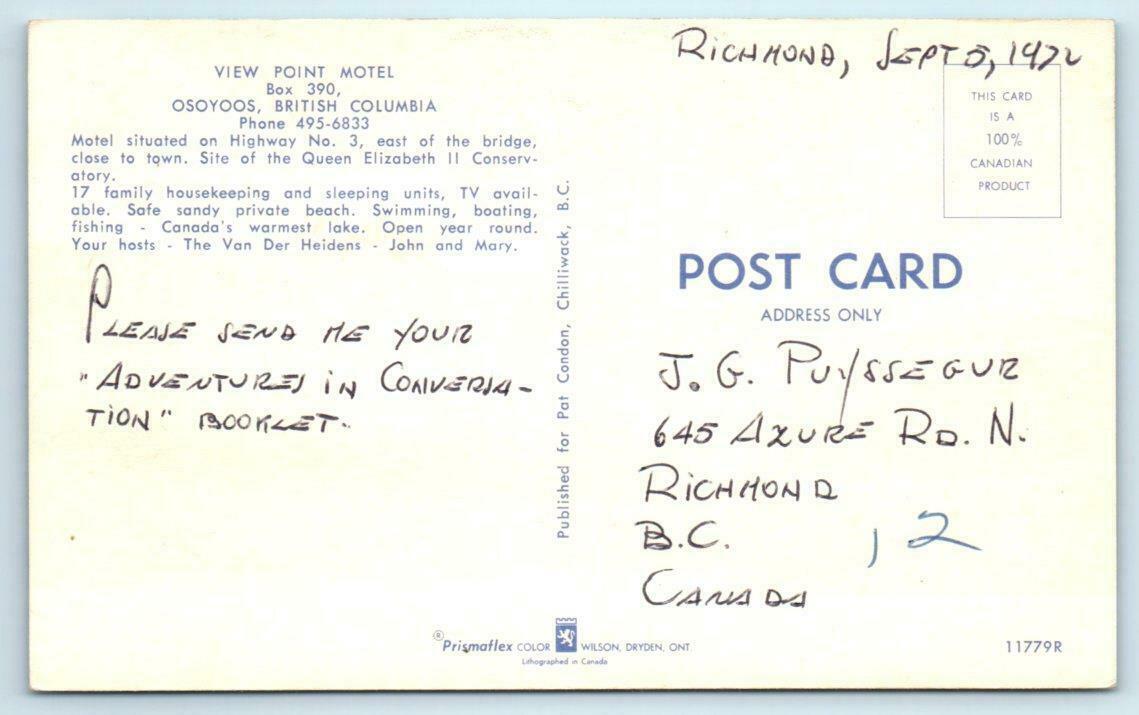 RICHMOND, SEPT 5, 1972
VIEW POINT MOTEL
Box 390,
OSOYOOS, BRITISH COLUMBIA
Phone 495-6833
Motel situated on Highway No. 3, east of the bridge,
close to town. Site of the Queen Elizabeth II Conserv-
atory.
17 family housekeeping and sleeping units, TV avail-
able. Safe sandy private beach. Swimming, boating,
fishing - Canada's warmest lake. Open year round.
Your hosts - The Van Der Heidens - John and Mary.
PLEASE SEND ME YOUR
"ADVENTURES IN CONVERSA-
TION" BOOKLET.
Published for Pat Condon, Chilliwack, B.C.
THIS CARD
IS A
100%
CANADIAN
PRODUCT
POST CARD
ADDRESS ONLY
J. G. PUYSSEGUR
645 AZURE RD. N.
RICHMOND
B.C.
, 2
CANADA
® Prismaflex COLOR WILSON, DRYDEN, ONT
Lithographed in Canada
11779R